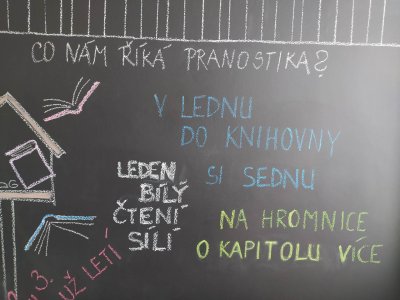 CO NÁM ŘÍKÁ PRANOSTIKA?
V LEDNU
DO KNIHOVNY
SI SEDNU
LEDEN
BÍLÝ
ČTENÍ
SÍLÍ
NA HROMNICE
O KAPITOLU VÍCE
3.
UŽ LETÍ